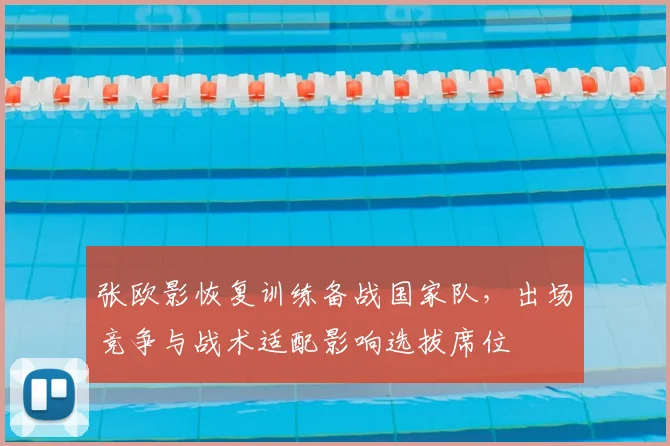 张欧影恢复训练备战国家队，出场
竞争与战术适配影响选拔席位